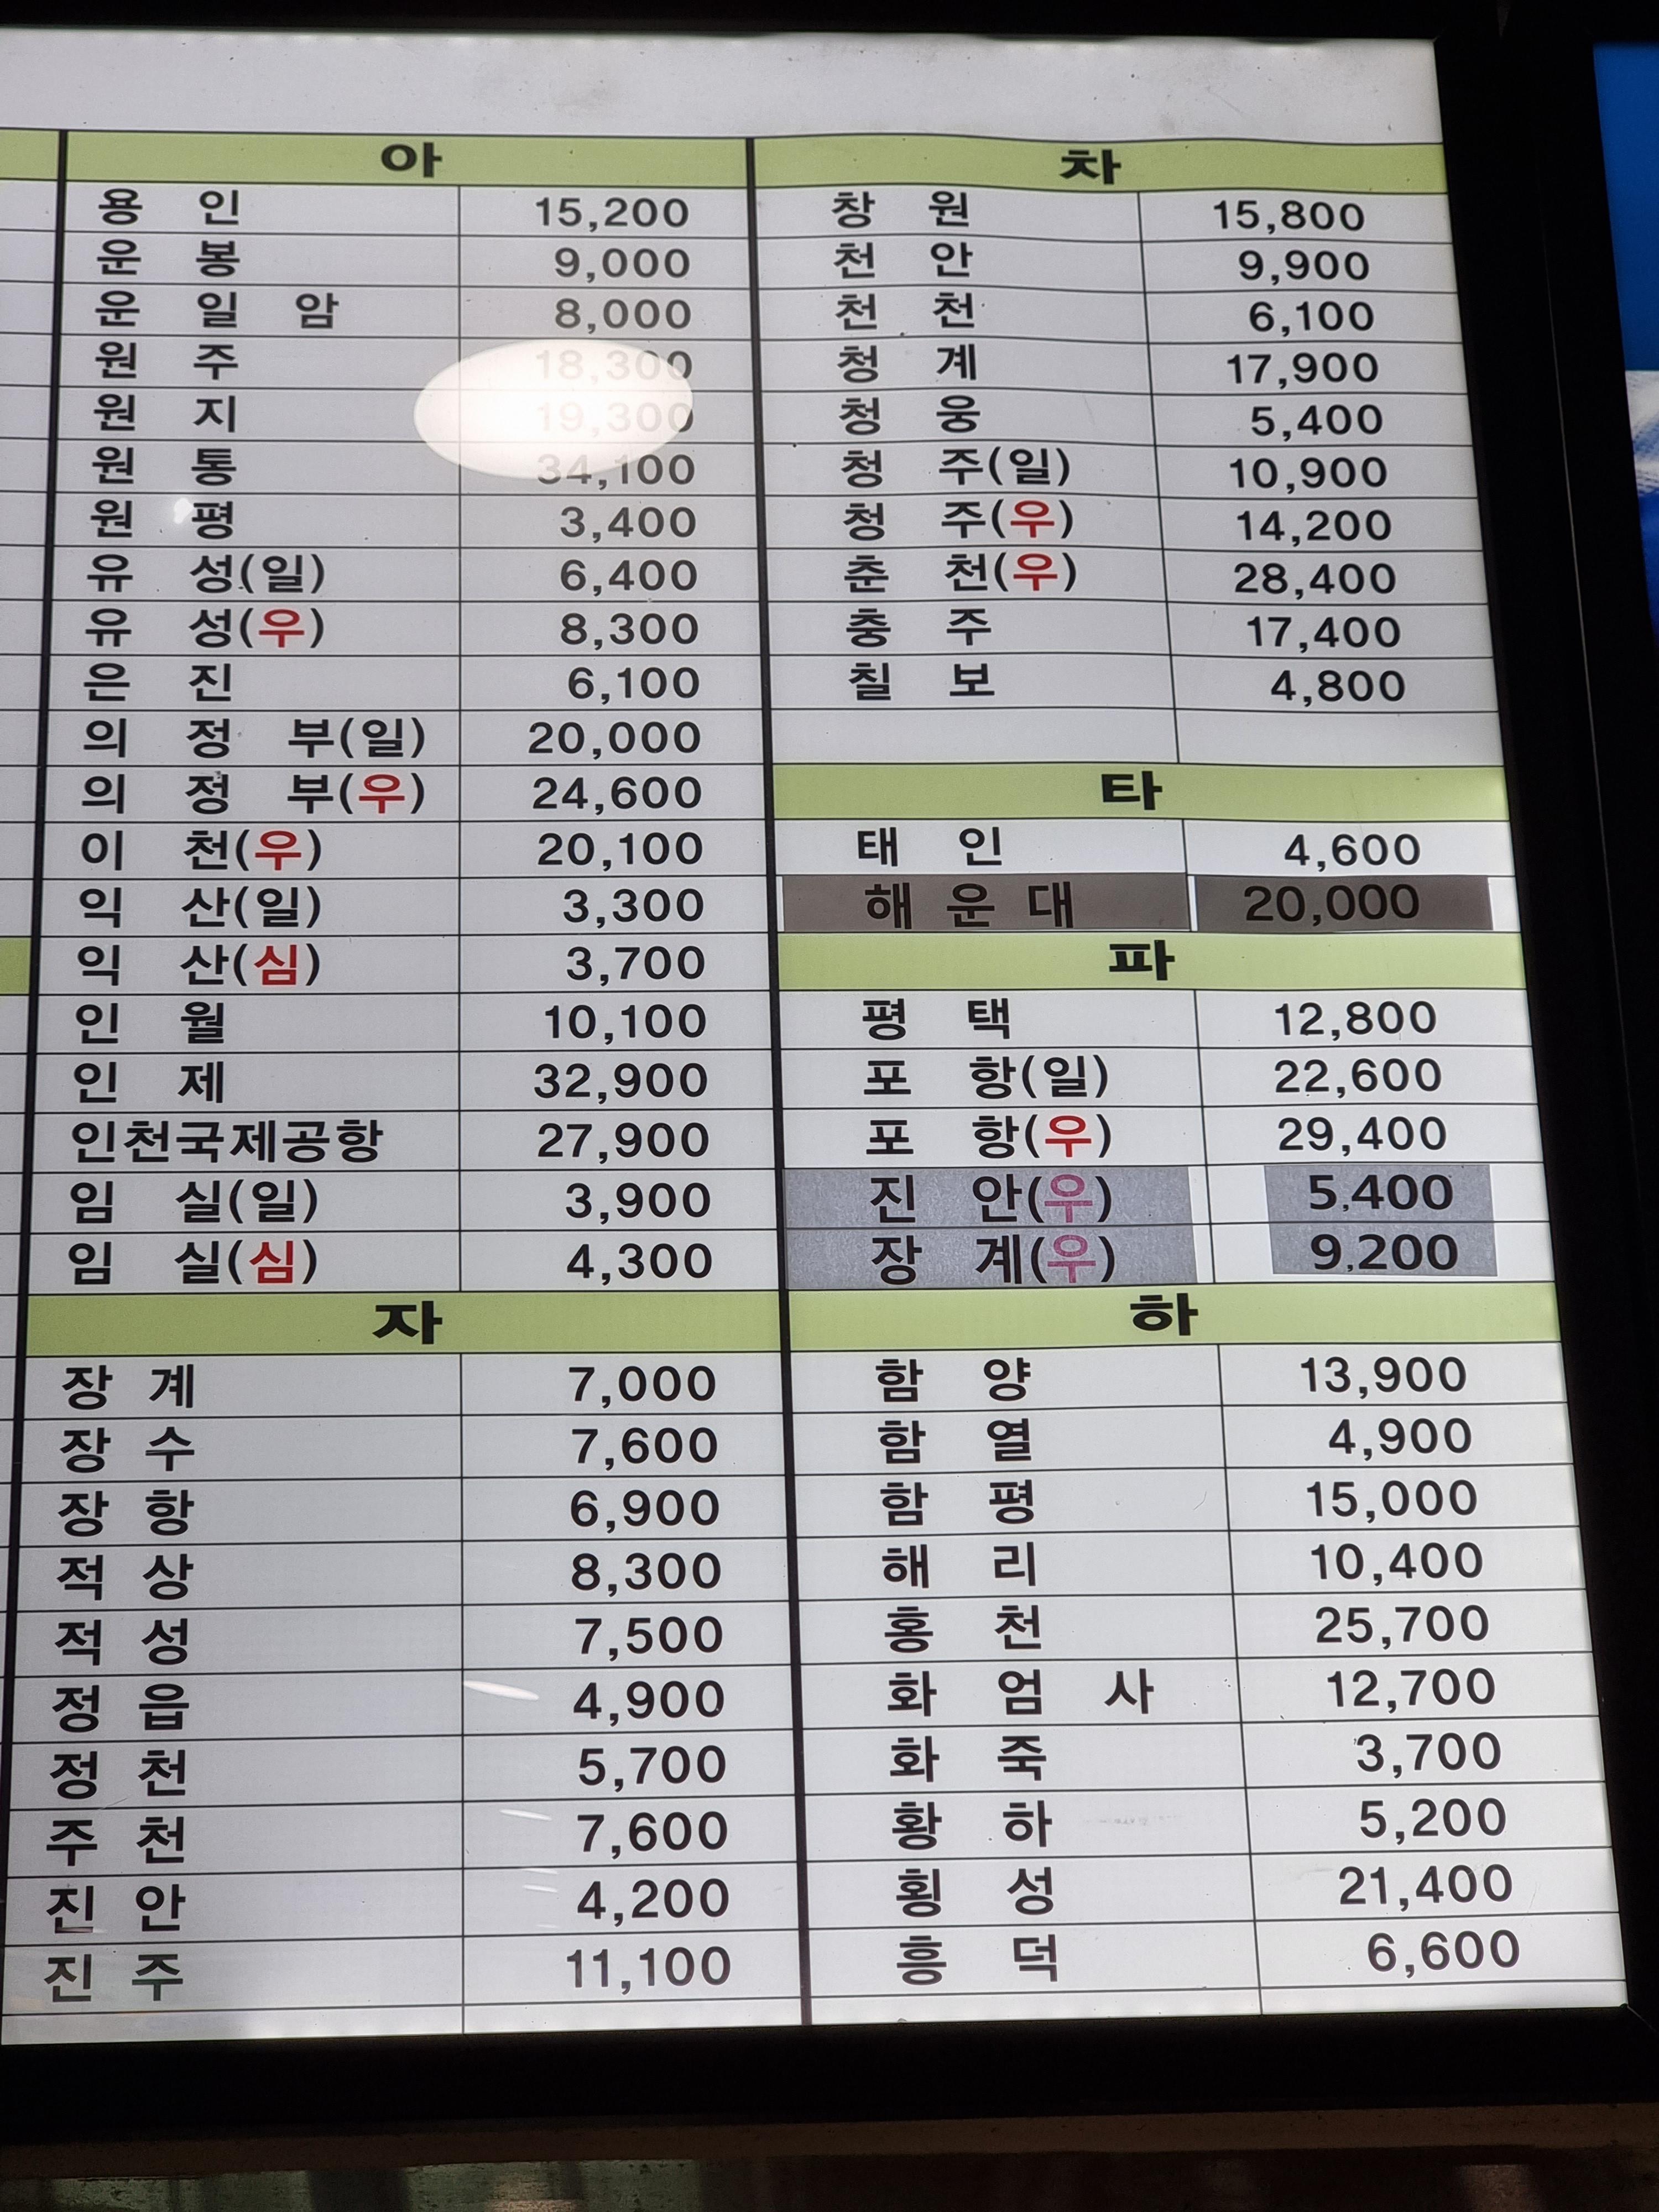 아
용 인 15,200
운 봉 9,000
운 일 암 8,000
원 주 18,300
원 지 19,300
원 통 34,100
원 평 3,400
유 성(일) 6,400
유 성(우) 8,300
은 진 6,100
의 정 부(일) 20,000
의 정 부(우) 24,600
이 천(우) 20,100
익 산(일) 3,300
익 산(심) 3,700
인 월 10,100
인 제 32,900
인천국제공항 27,900
임 실(일) 3,900
임 실(심) 4,300
자
장 계 7,000
장 수 7,600
장 항 6,900
적 상 8,300
적 성 7,500
정 읍 4,900
정 천 5,700
주 천 7,600
진 안 4,200
진 주 11,100
차
창 원 15,800
천 안 9,900
천 천 6,100
청 계 17,900
청 웅 5,400
청 주(일) 10,900
청 주(우) 14,200
춘 천(우) 28,400
충 주 17,400
칠 보 4,800
타
태 인 4,600
해 운 대 20,000
파
평 택 12,800
포 항(일) 22,600
포 항(우) 29,400
진 안(우) 5,400
장 계(우) 9,200
하
함 양 13,900
함 열 4,900
함 평 15,000
해 리 10,400
홍 천 25,700
화 엄 사 12,700
화 죽 3,700
황 하 5,200
횡 성 21,400
흥 덕 6,600